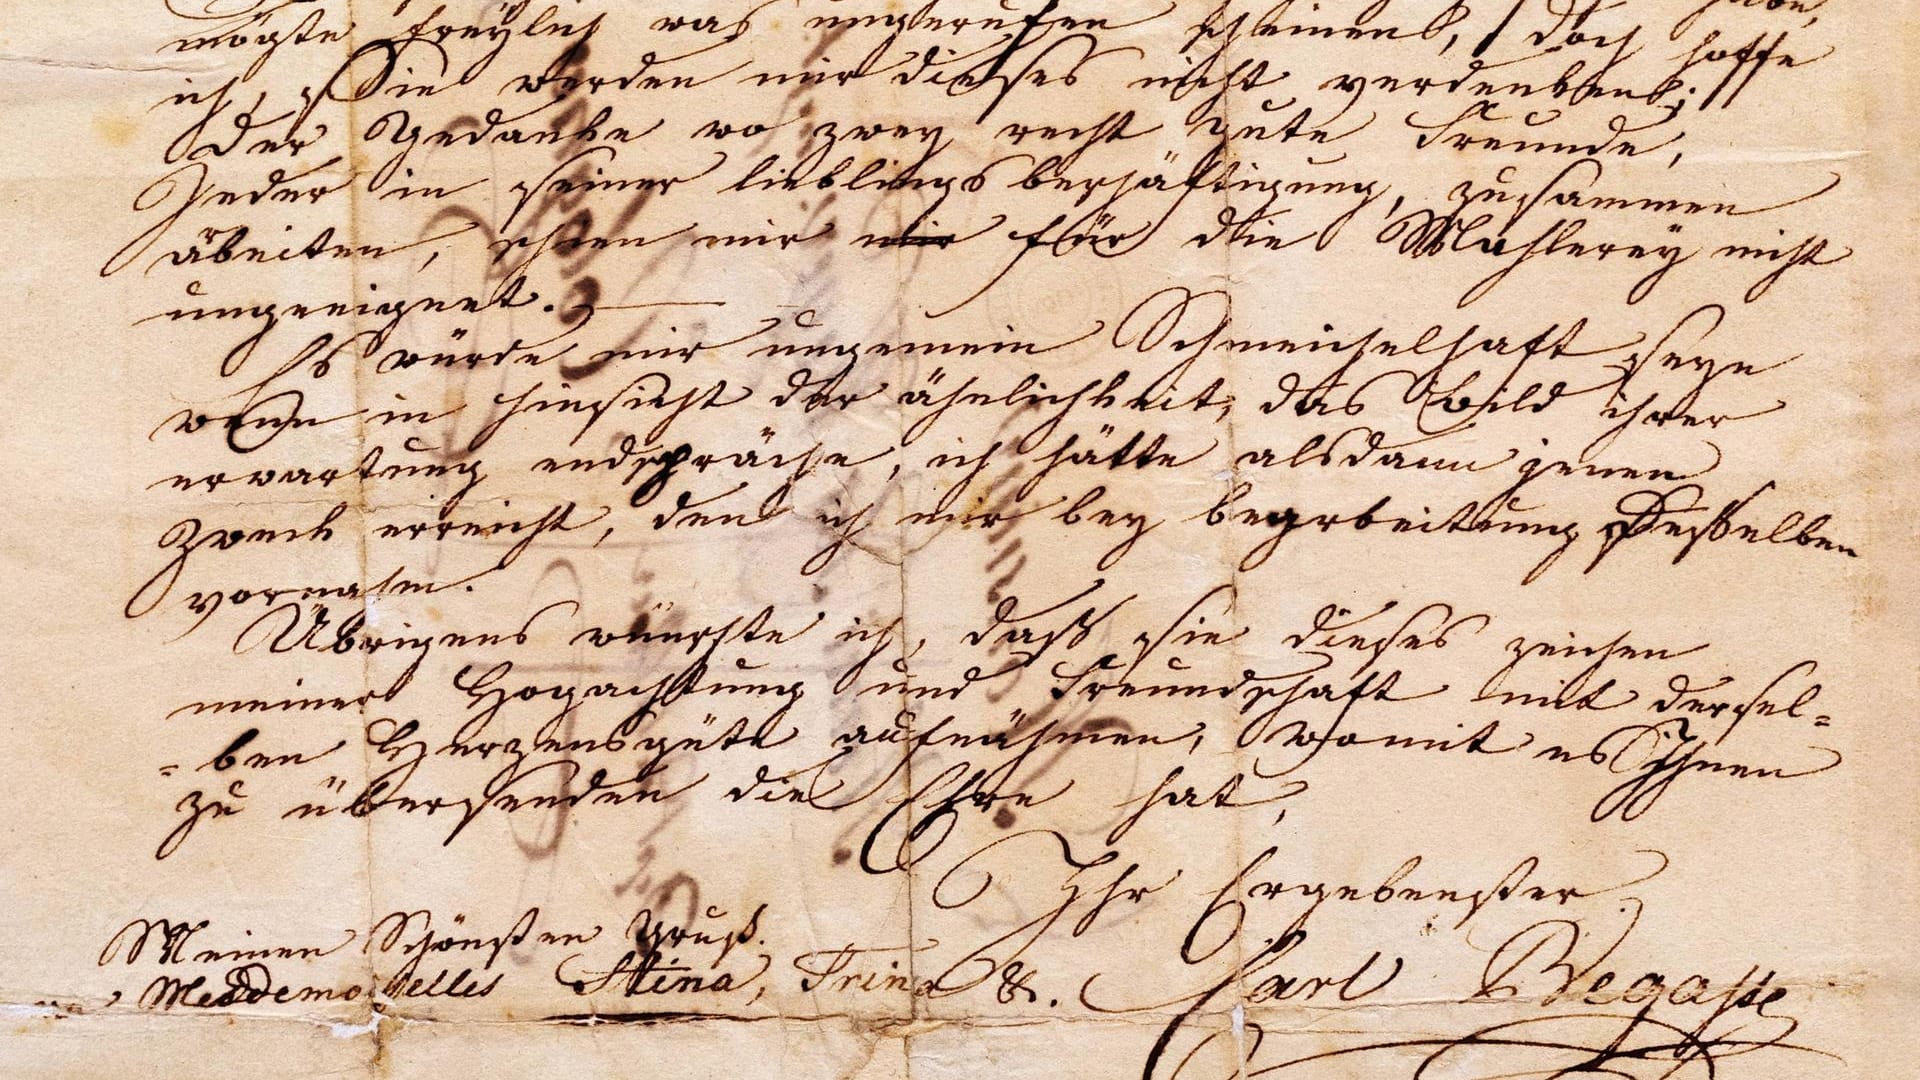 habe,
mögte freylich was ungerufen scheinen, doch hoffe
ich, Sie werden mir dieses nicht verdenken;
der Gedanke wo zwey recht gute Freunde,
Jeder in seiner lieblings beschäftigung, zusammen
arbeiten, schien mir mir für die Mahlerey nicht
ungeeignet.
Es würde mir ungemein Schmeichelhaft seyn
wenn in hinsicht der ähnlichkeit, das Bild ihrer
erwartung endspräche, ich hätte alsdann jenen
Zweck erreicht, den ich mir bey bearbeitung Desselben
vornahm.
Übrigens wünschte ich, daß sie dieses zeichen
meiner Hogachtung und Freundschaft mit dersel=
=ben Herzensgüte aufnähmen, womit es Ihnen
zu übersenden die Ehre hat,
Ihr Ergebenster
Meinen Schönsten Gruß.
Meddemoselles Stina, Trina &. Carl Begasse